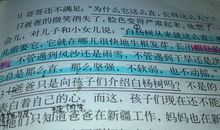 哥哥还不满足:“为什么它这么直,长得这么大?”
爸爸的微笑消失了,脸色变得严肃起来,
会儿,对儿子和小女儿说:“白杨树从来就这么直
儿需要它,它就在哪儿很快地生根发芽,长出
不管遇到风沙还是雨雪,不管遇到干旱还是洪
总是那么直,那么坚强,不软弱,也不动摇。
爸爸只是向孩子们介绍白杨树吗?不是的
表白着自己的心。而这,孩子们现在还不
们只知道爸爸在新疆工作,妈妈也在